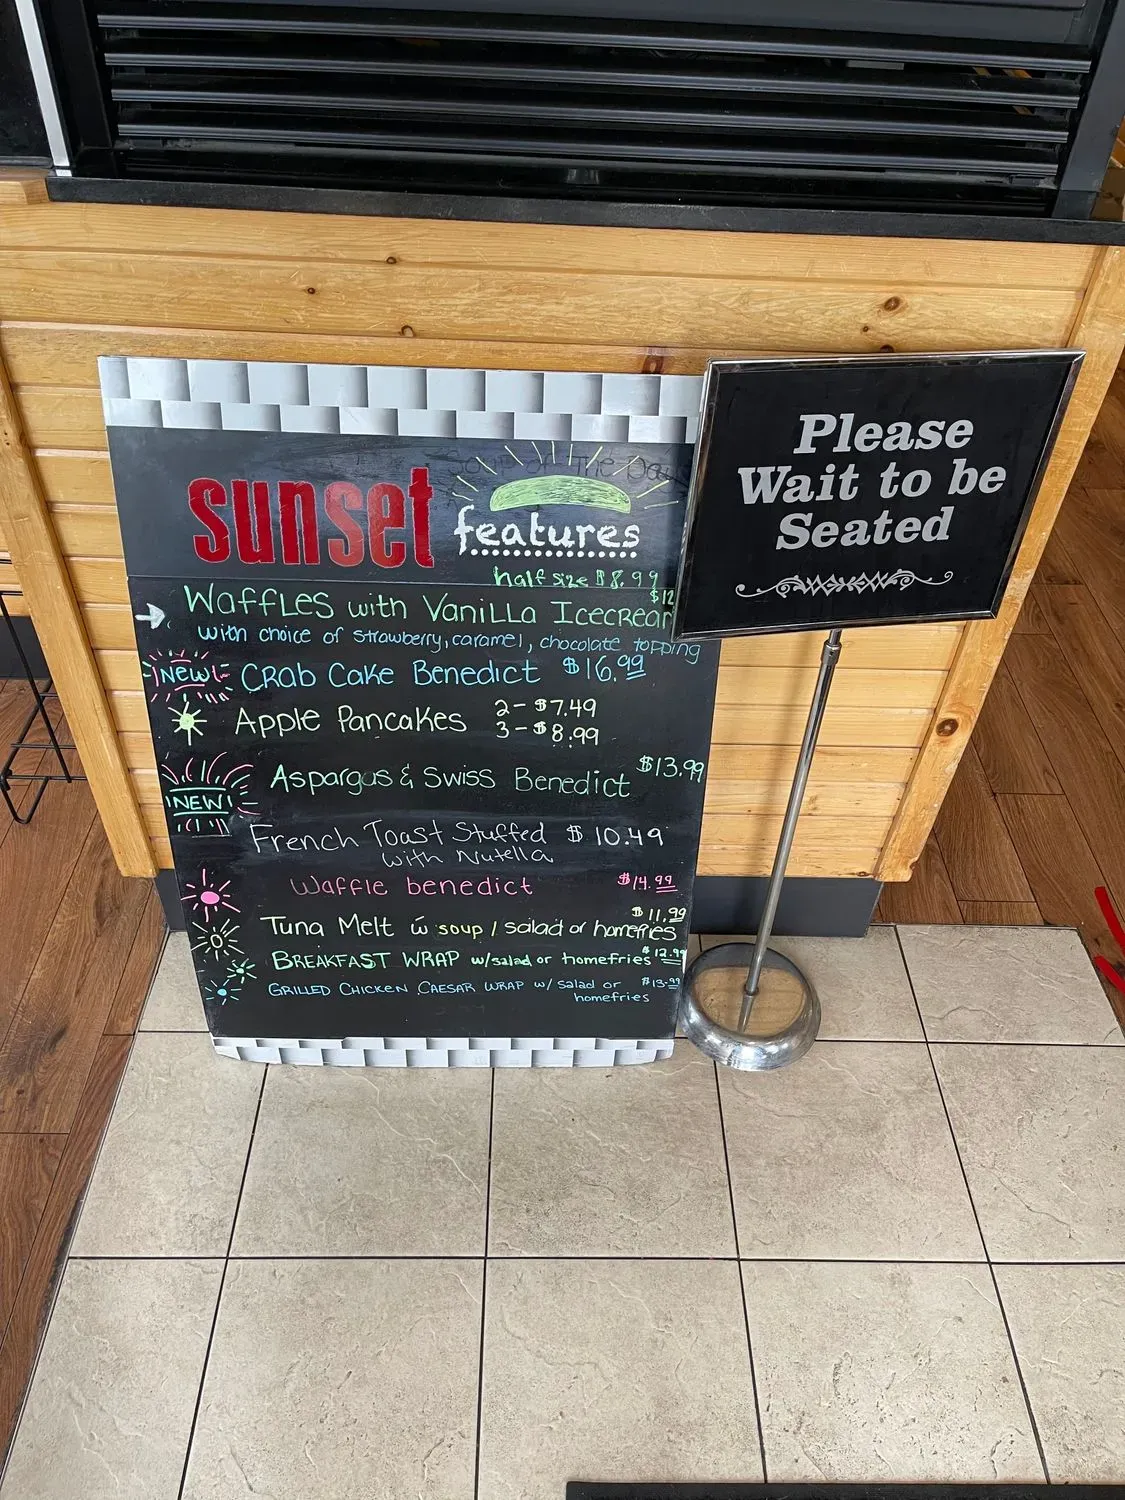 Soup of The Day
sunset features
half size $8.99
$12
WAFFLES with VANILLA ICECREAM
with choice of strawberry, caramel, chocolate topping
NEW! CRAB CAKE BENEDICT $16.99
APPLE PANCAKES 2 - $7.49
3 - $8.99
NEW! ASPARGUS & SWISS BENEDICT $13.99
FRENCH TOAST STUFFED $10.49
with Nutella
Waffle benedict $14.99
$11.99
TUNA MELT w soup / salad or homefries
BREAKFAST WRAP w/salad or homefries $12.99
GRILLED CHICKEN CAESAR WRAP w/ salad or $13.99
homefries
Please
Wait to be
Seated